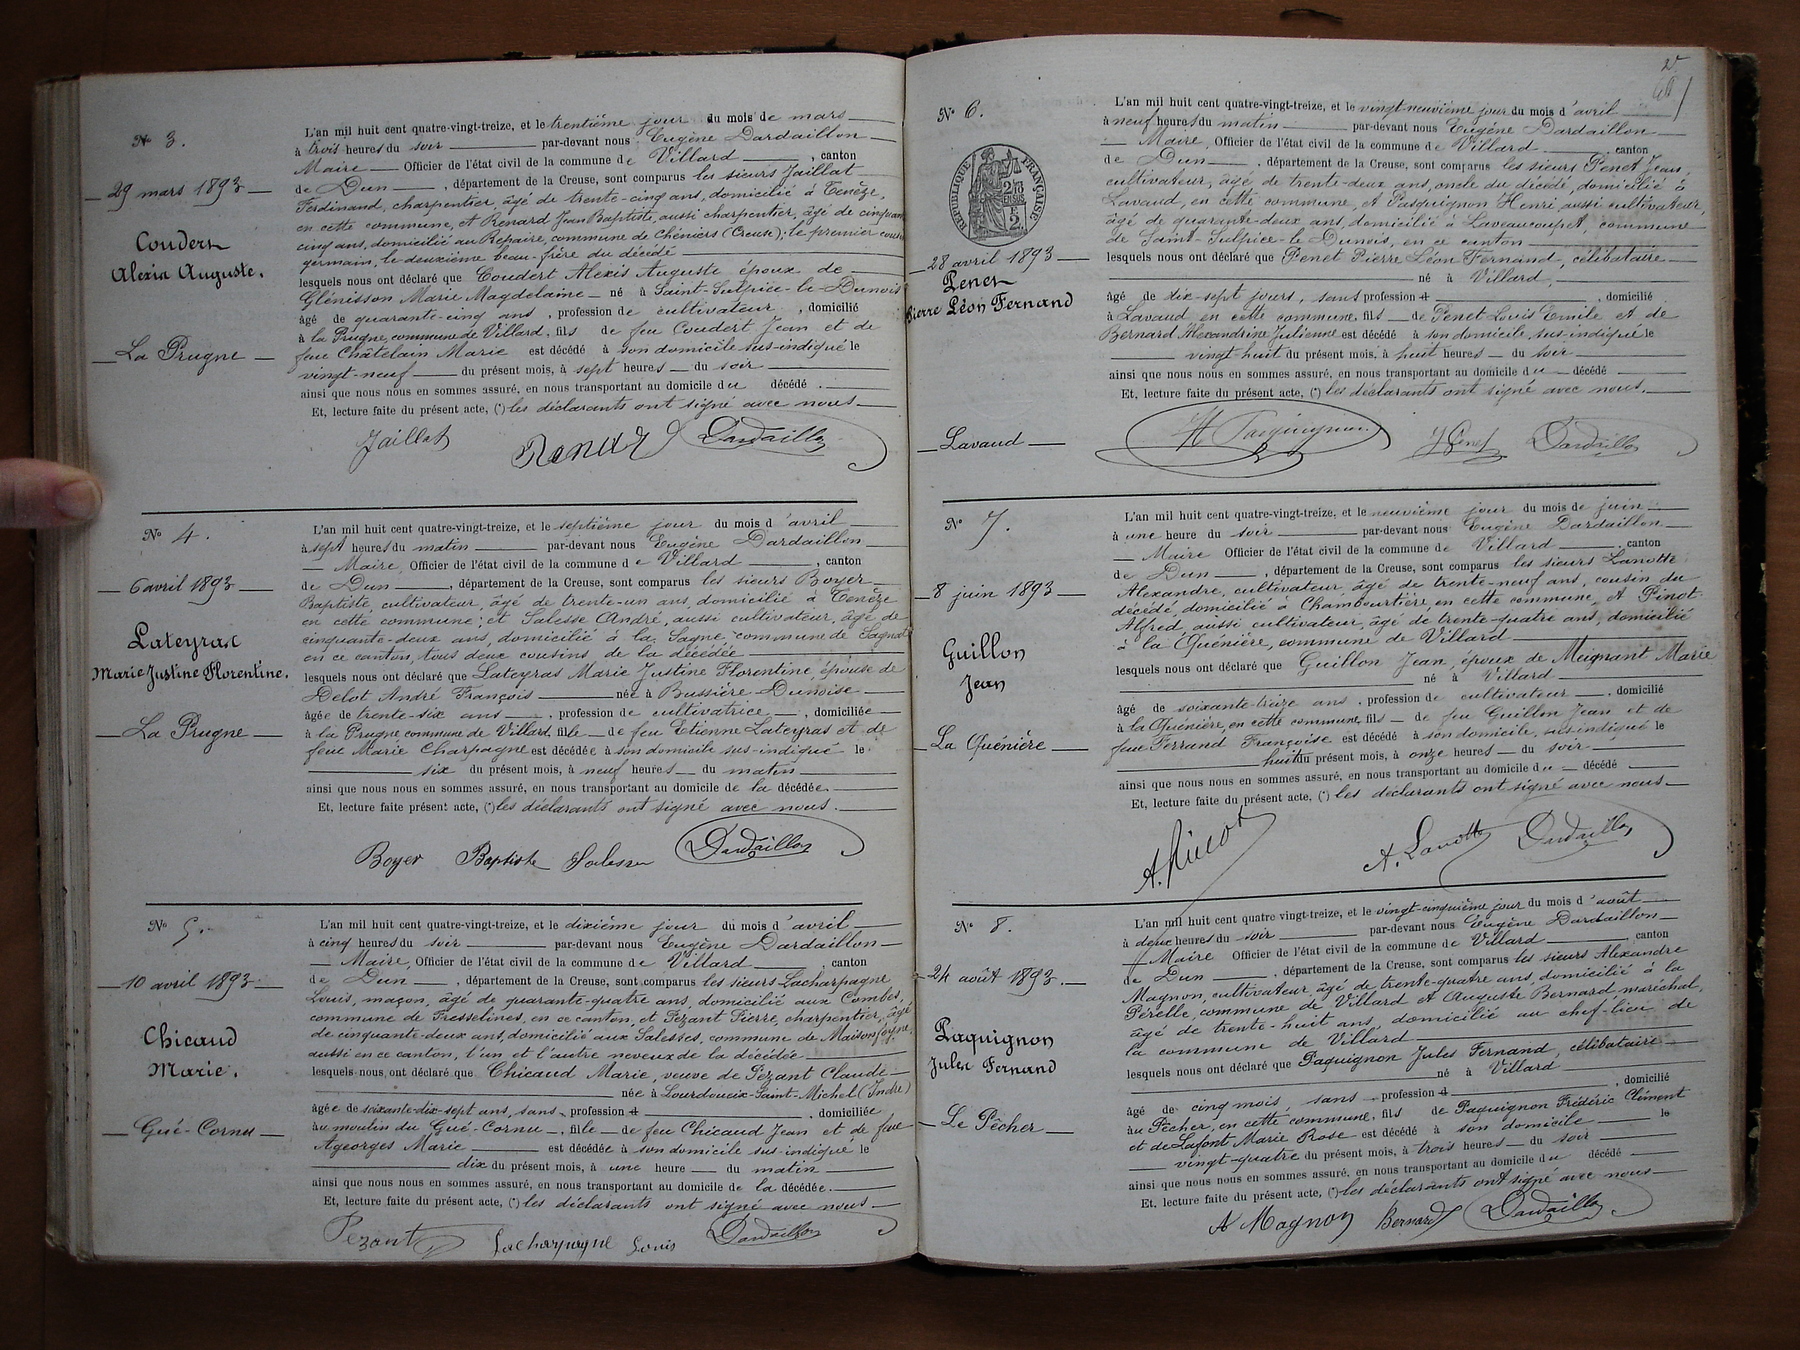 N° 3.
29 mars 1893
Coudert
Alexis Auguste.
La Prugne
L'an mil huit cent quatre-vingt-treize, et le trentième jour du mois de mars
à trois heures du soir par-devant nous Eugène Dardaillon
Maire Officier de l'état civil de la commune de Villard, canton
de Dun, département de la Creuse, sont comparus les sieurs Jaillat
Ferdinand, charpentier, âgé de trente-cinq ans, domicilié à Tenèze,
en cette commune, et Renard Jean Baptiste, aussi charpentier, âgé de cinquante
cinq ans, domicilié au Repaire, commune de Chéniers (Creuse); le premier cousin
germain, le deuxième beau-frère du décédé
lesquels nous ont déclaré que Coudert Alexis Auguste époux de
Glénisson Marie Magdelaine né à Saint-Sulpice-le-Dunois
âgé de quarante-cinq ans, profession de cultivateur, domicilié
à la Prugne, commune de Villard, fils de feu Coudert Jean et de
feue Châtelain Marie est décédé à son domicile sus-indiqué le
vingt-neuf du présent mois, à sept heures du soir
ainsi que nous nous en sommes assuré, en nous transportant au domicile du décédé.
Et, lecture faite du présent acte, (*) les déclarants ont signé avec nous
Jaillat Renard Dardaillon
N° 4.
6 avril 1893
Lateyras
Marie Justine Florentine.
La Prugne
L'an mil huit cent quatre-vingt-treize, et le septième jour du mois d'avril
à sept heures du matin par-devant nous Eugène Dardaillon
Maire, Officier de l'état civil de la commune de Villard, canton
de Dun, département de la Creuse, sont comparus les sieurs Boyer
Baptiste, cultivateur, âgé de trente-un ans, domicilié à Tenèze
en cette commune; et Salesse André, aussi cultivateur, âgé de
cinquante-deux ans, domicilié à la Sagne commune de Sagnat
en ce canton, tous deux cousins de la décédée
lesquels nous ont déclaré que Lateyras Marie Justine Florentine, épouse de
Delot André François née à Bussière Dunoise
âgée de trente-six ans, profession de cultivatrice, domiciliée
à la Prugne commune de Villard, fille de feu Etienne Lateyras et de
feue Marie Charpagne est décédée à son domicile sus-indiqué le
six du présent mois, à neuf heures du matin
ainsi que nous nous en sommes assuré, en nous transportant au domicile de la décédée.
Et, lecture faite du présent acte, (*) les déclarants ont signé avec nous.
Boyer Baptiste Salesse Dardaillon
N° 5.
10 avril 1893
Chicaud
Marie.
Gué-Cornu
L'an mil huit cent quatre-vingt-treize, et le dixième jour du mois d'avril
à cinq heures du soir par-devant nous Eugène Dardaillon
Maire, Officier de l'état civil de la commune de Villard, canton
de Dun, département de la Creuse, sont comparus les sieurs Lacharpagne
Louis, maçon, âgé de quarante-quatre ans, domicilié aux Combes,
commune de Fresselines, en ce canton, et Pézant Pierre, charpentier, âgé
de cinquante-deux ans, domicilié aux Salesses, commune de Maisonfeyne,
aussi en ce canton, l'un et l'autre neveux de la décédée
lesquels nous ont déclaré que Chicaud Marie, veuve de Pézant Claude
née à Lourdoueix-Saint-Michel (Indre)
âgée de soixante-dix-sept ans, sans profession d, domiciliée
au moulin du Gué-Cornu, fille de feu Chicaud Jean et de feue
Ageorges Marie est décédée à son domicile sus-indiqué le
dix du présent mois, à une heure du matin
ainsi que nous nous en sommes assuré, en nous transportant au domicile de la décédée.
Et, lecture faite du présent acte, (*) les déclarants ont signé avec nous
Pezant Lacharpagne Louis Dardaillon
N° 6.
RÉPUBLIQUE FRANÇAISE
28 avril 1893
Penet
Pierre Léon Fernand
Lavaud
L'an mil huit cent quatre-vingt-treize, et le vingt-neuvième jour du mois d'avril
à neuf heures du matin par-devant nous Eugène Dardaillon
Maire, Officier de l'état civil de la commune de Villard, canton
de Dun, département de la Creuse, sont comparus les sieurs Penet Jean,
cultivateur, âgé de trente-deux ans, oncle du décédé, domicilié à
Lavaud, en cette commune, et Pasquignon Henri, aussi cultivateur,
âgé de quarante-deux ans, domicilié à Laveaucoupet, commune
de Saint-Sulpice-le Dunois, en ce canton
lesquels nous ont déclaré que Penet Pierre Léon Fernand, célibataire
né à Villard,
âgé de dix-sept jours, sans profession d, domicilié
à Lavaud en cette commune, fils de Penet Louis Emile et de
Bernard Alexandrine Julienne est décédé à son domicile sus-indiqué le
vingt-huit du présent mois, à huit heures du soir
ainsi que nous nous en sommes assuré, en nous transportant au domicile du décédé
Et, lecture faite du présent acte, (*) les déclarants ont signé avec nous.
H Pasquignon J Penet Dardaillon
N° 7.
8 juin 1893
Guillon
Jean
La Quénière
L'an mil huit cent quatre-vingt-treize, et le neuvième jour du mois de juin
à une heure du soir par-devant nous Eugène Dardaillon
Maire Officier de l'état civil de la commune de Villard, canton
de Dun, département de la Creuse, sont comparus les sieurs Lanotte
Alexandre, cultivateur, âgé de trente-neuf ans, cousin du
décédé, domicilié à Chambourtière, en cette commune, et Pinot
Alfred, aussi cultivateur, âgé de trente-quatre ans, domicilié
à la Quénière, commune de Villard
lesquels nous ont déclaré que Guillon Jean, époux de Meignant Marie
né à Villard
âgé de soixante-treize ans, profession de cultivateur, domicilié
à la Quénière, en cette commune, fils de feu Guillon Jean et de
feue Ferrand Françoise est décédé à son domicile, sus-indiqué le
huit du présent mois, à onze heures du soir
ainsi que nous nous en sommes assuré, en nous transportant au domicile du décédé
Et, lecture faite du présent acte, (*) les déclarants ont signé avec nous
A. Pinot A. Lanotte Dardaillon
N° 8.
24 août 1893.
Paquignon
Jules Fernand
Le Pêcher
L'an mil huit cent quatre vingt-treize, et le vingt-cinquième jour du mois d'août
à deux heures du soir par-devant nous Eugène Dardaillon
Maire Officier de l'état civil de la commune de Villard, canton
de Dun, département de la Creuse, sont comparus les sieurs Alexandre
Magnon, cultivateur âgé de trente-quatre ans, domicilié à la
Pérelle, commune de Villard et Auguste Bernard maréchal,
âgé de trente-huit ans, domicilié au chef-lieu de
la commune de Villard
lesquels nous ont déclaré que Paquignon Jules Fernand, célibataire
né à Villard
âgé de cinq mois, sans profession d, domicilié
au Pêcher, en cette commune, fils de Paquignon Frédéric Clément
et de Lafont Marie Rose est décédé à son domicile le
vingt-quatre du présent mois, à trois heures du soir
ainsi que nous nous en sommes assuré, en nous transportant au domicile du décédé
Et, lecture faite du présent acte, (*) les déclarants ont signé avec nous
A Magnon Bernard Dardaillon